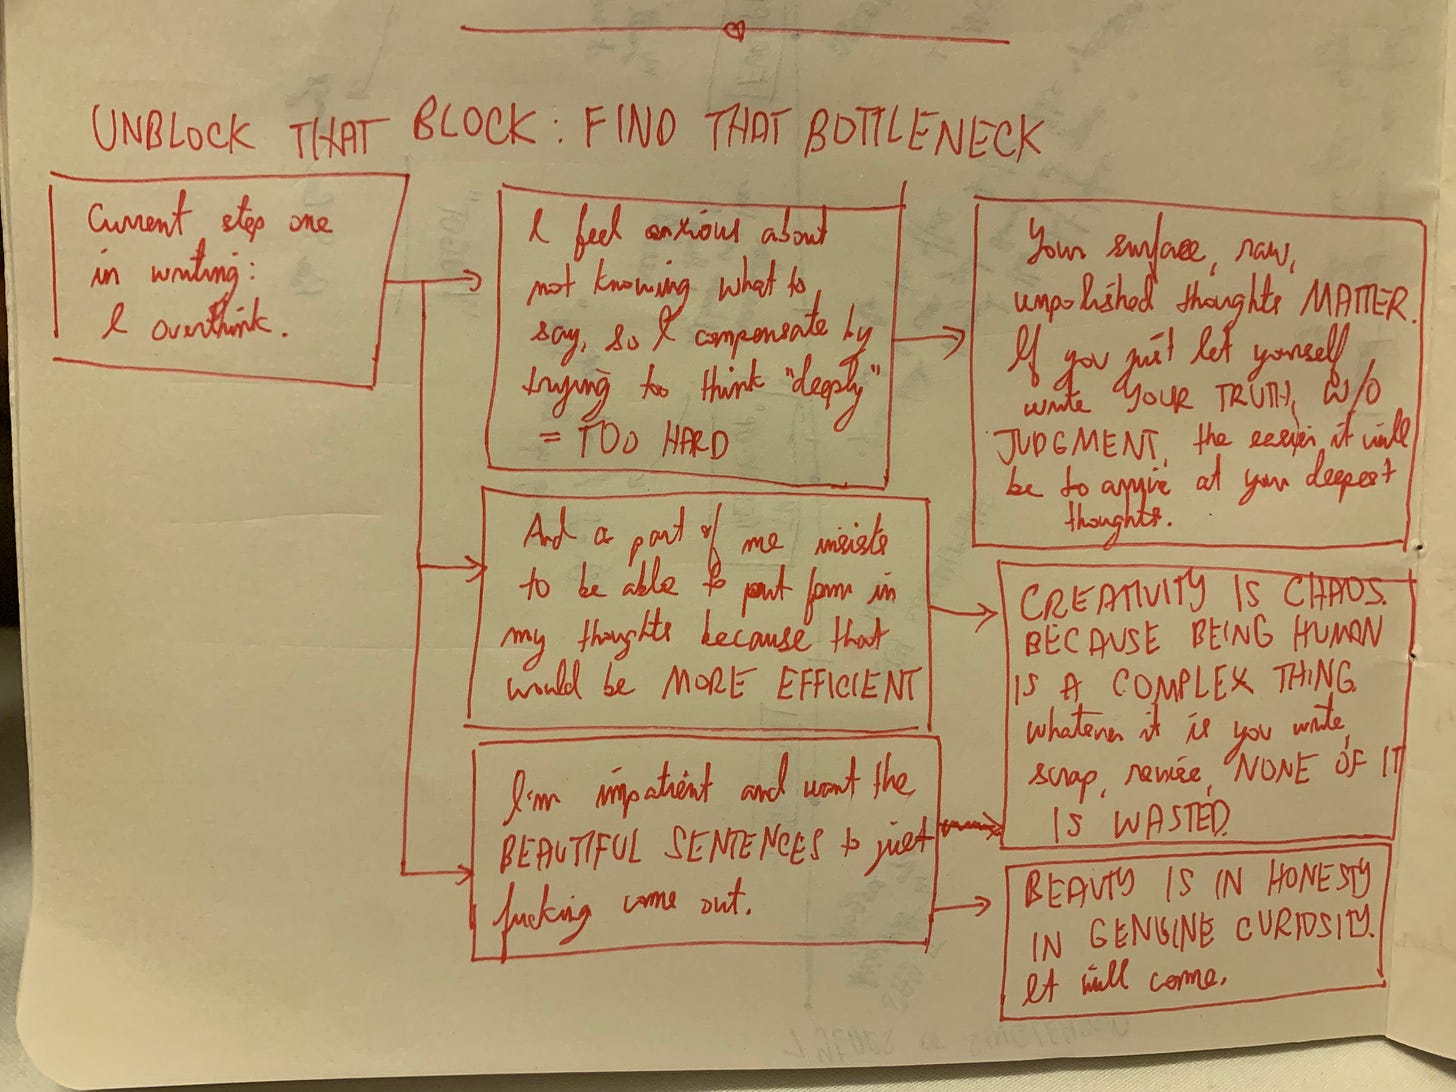 UNBLOCK THAT BLOCK: FIND THAT BOTTLENECK
Current step one
in writing:
I overthink.
I feel anxious about
not knowing what to
say, so I compensate by
trying to think "deeply"
= TOO HARD
And a part of me insists
to be able to put form in
my thoughts because that
would be MORE EFFICIENT
I'm impatient and want the
BEAUTIFUL SENTENCES to just
fucking come out.
Your surface, raw,
unpolished thoughts MATTER.
If you just let yourself
write YOUR TRUTH, W/O
JUDGMENT, the easier it will
be to arrive at your deepest
thoughts.
CREATIVITY IS CHAOS.
BECAUSE BEING HUMAN
IS A COMPLEX THING.
whatever it is you write,
scrap, revise, NONE OF IT
IS WASTED.
BEAUTY IS IN HONESTY
IN GENUINE CURIOSITY.
It will come.